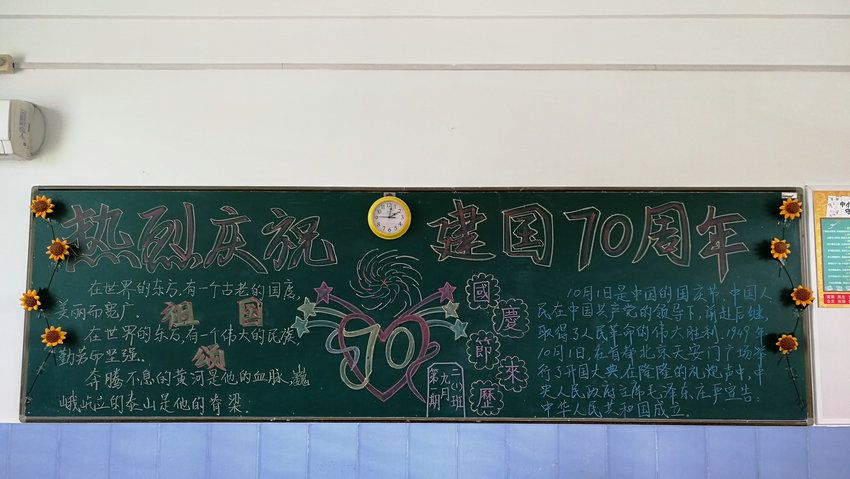 热烈庆祝 建国70周年
在世界的东方,有一个古老的国度,
美丽而宽广
祖国
颂
在世界的东方,有一个伟大的民族
勤劳而坚强.
奔腾不息的黄河是他的血脉,巍
峨屹立的泰山是他的脊梁.
70
第九期
二(1)班
國慶節來歷
10月1日是中国的国庆节,中国人
民在中国共产党的领导下,前赴后继,
取得了人民革命的伟大胜利.1949年
10月1日,在首都北京天安门广场举
行了开国大典在隆隆的礼炮声中,中
央人民政府主席毛泽东庄严宣告:
中华人民共和国成立.